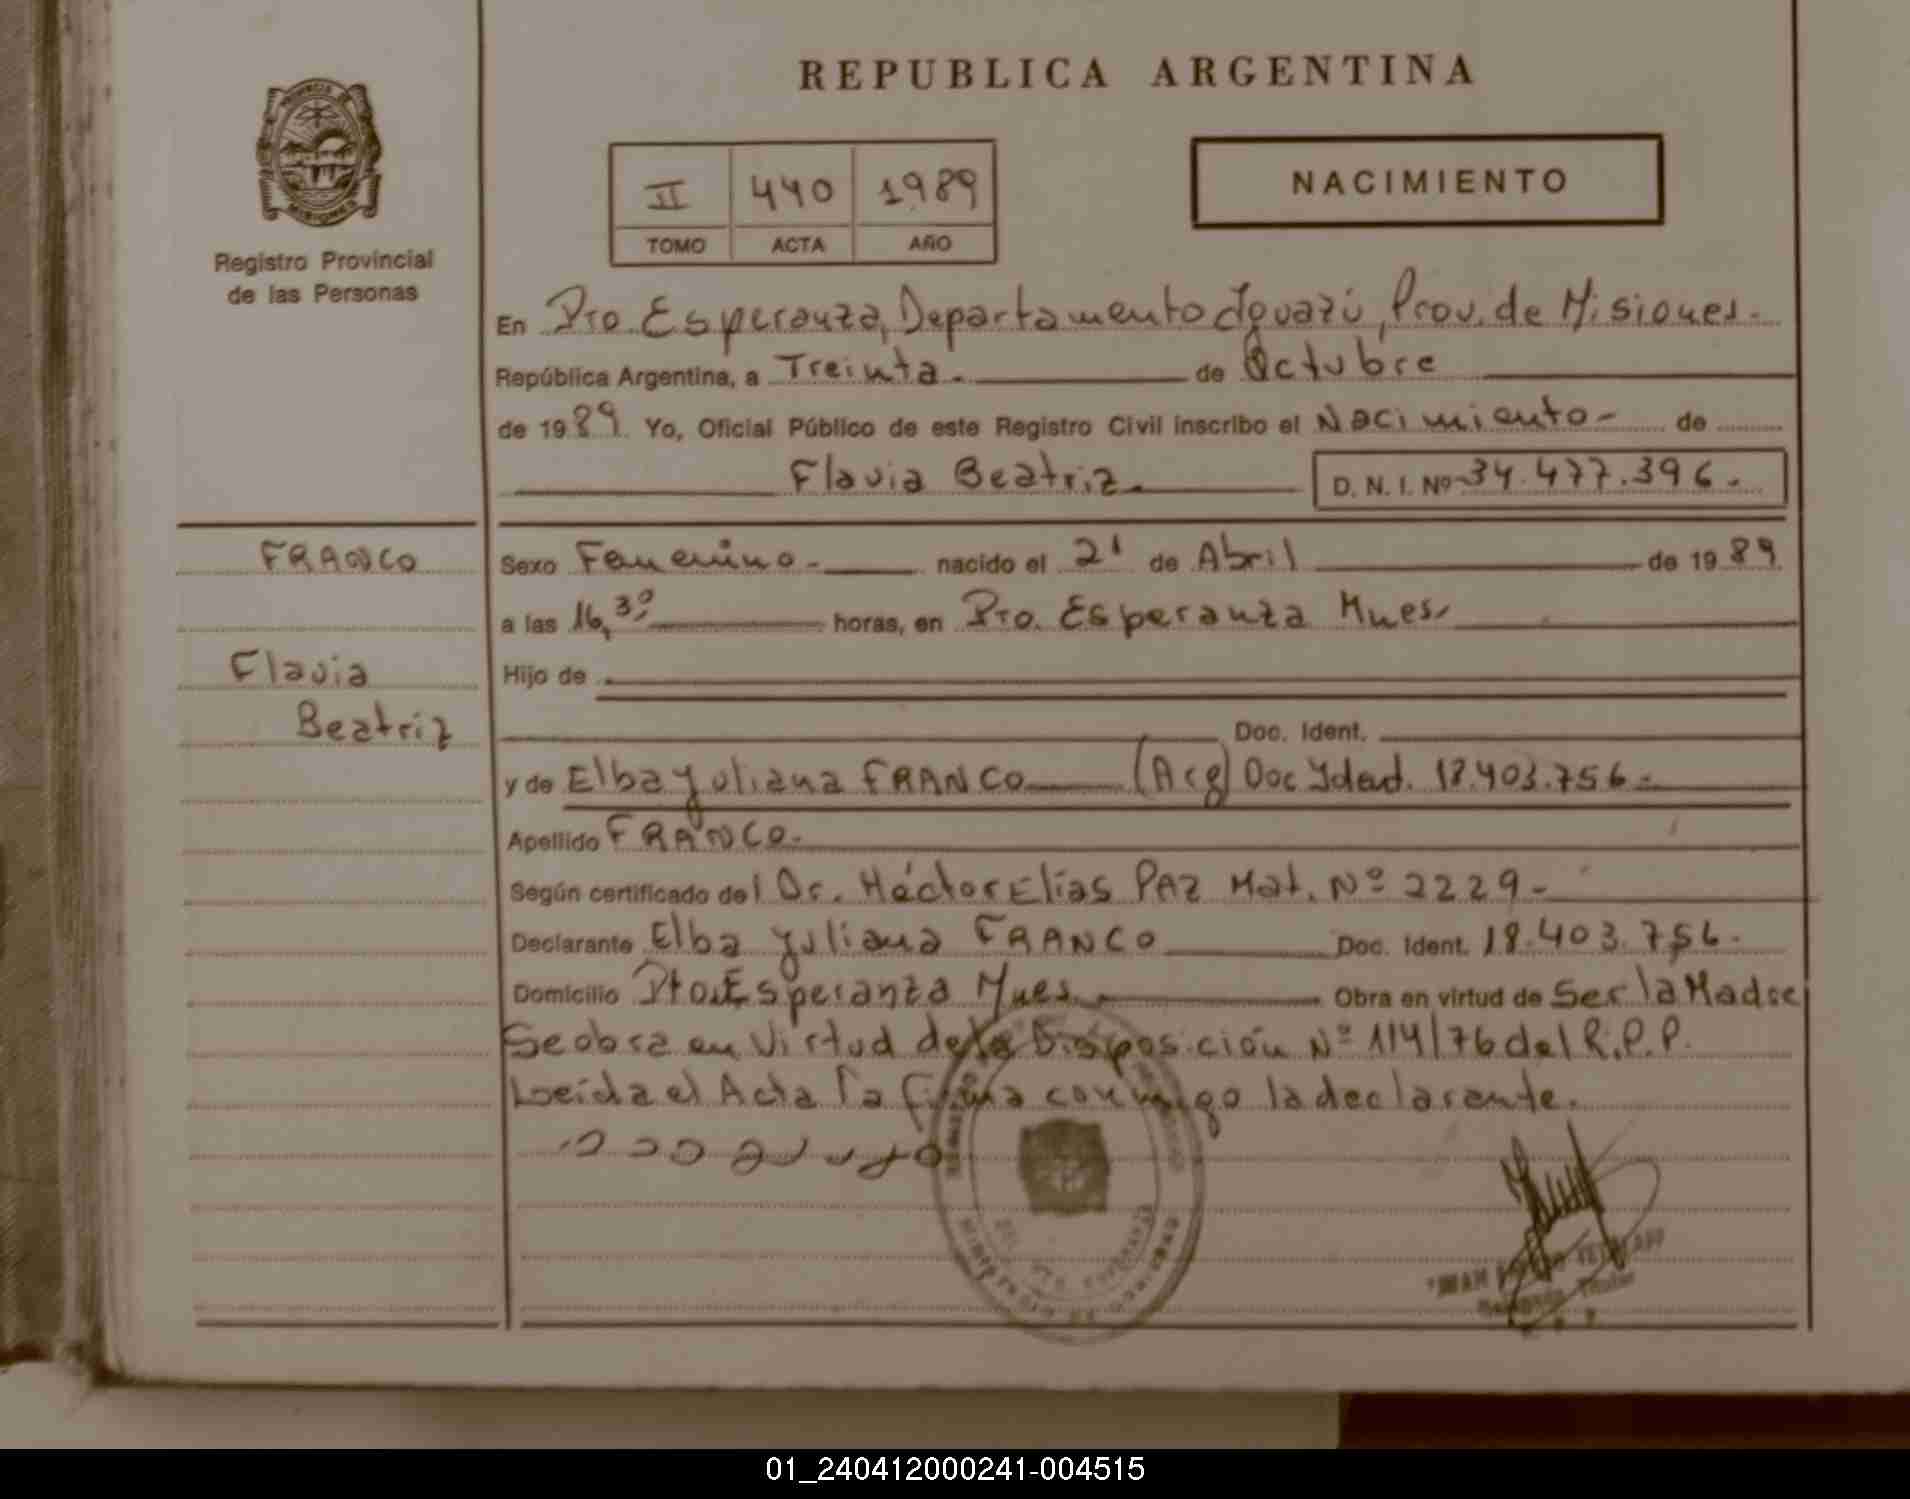 REPUBLICA ARGENTINA
PROVINCIA DE
MISIONES
Registro Provincial
de las Personas
II 440 1989
TOMO ACTA AÑO
NACIMIENTO
En Pto. Esperanza, Departamento Iguazú, Prov. de Misiones.
República Argentina, a Treinta. de Octubre
de 1989. Yo, Oficial Público de este Registro Civil inscribo el Nacimiento- de
Flavia Beatriz. D. N. I. Nº 34.477.396.
FRANCO
Flavia
Beatriz
Sexo Femenino- nacido el 21 de Abril de 1989.
a las 16,30 horas, en Pto. Esperanza Mnes.
Hijo de
Doc. Ident.
y de Elba Yuliana FRANCO (Arg) Doc Idad. 18.403.756-
Apellido FRANCO-
Según certificado del Dr. Héctor Elías PAZ Mat. Nº 2229-
Declarante Elba Yuliana FRANCO Doc. Ident. 18.403.756.
Domicilio Pto. Esperanza Mnes. Obra en virtud de Ser la Madre
Se obra en Virtud de la Disposición Nº 114/76 del R.P.P.
Leída el Acta la firma conmigo la declarante.
Titular
01_240412000241-004515